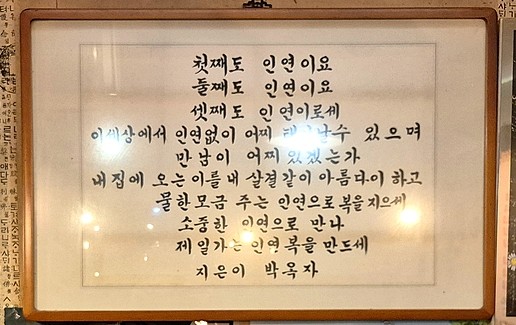 첫째도 인연이요
둘째도 인연이요
셋째도 인연이로세
이세상에서 인연없이 어찌 수 있으며
만남이 어찌 있겠는가
내집에 오는이를 내 살결같이 아름다이 하고
물한모금 주는 인연으로 복을 지으세
소중한 인연으로 만나
제일가는 인연복을 만드세
지은이 박옥자